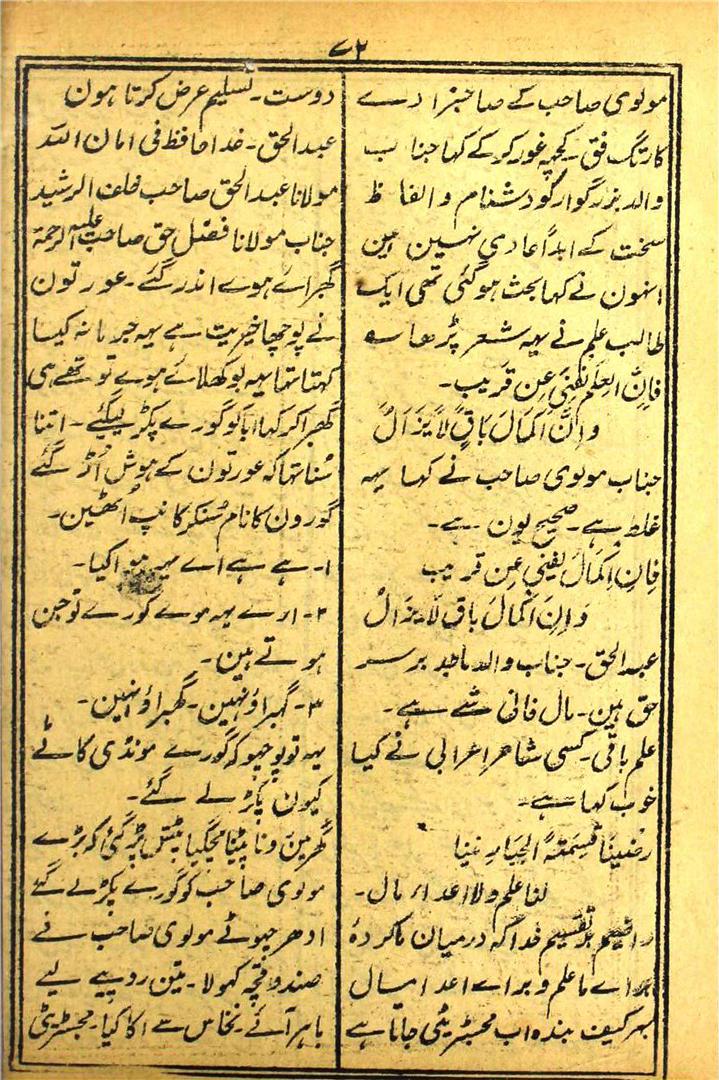 ۷۲
مولوی صاحب کے صاحبزادے
کا رنگ فق۔ کچھہ غور کر کے کہا جناب
والد بزرگوار گو دشنام و الفاظ
سخت کے ابداً عادی نہین ہین
انہون نے کہا بحث ہو گئی تھی ایک
طالب علم نے یہہ شعر پڑھا ؎
فَاِنَّ العِلمَ یَفنیٰ عِن قَریب۔
وَاِنَّ المَالَ بَاقٍ لَا یَزَالُ
جناب مولوی صاحب نے کہا یہہ
غلط ہے۔ صحیح یون ہے۔
فَاِنَ المَالَ یَفنیٰ عِن قریب
وَاِنَ المَالَ باقٍ لَا یَزَالُ
عبدالحق۔ جناب والد ماجد برسر
حق ہین۔ مال فانی شے ہے۔
علم باقی۔ کسی شاعر اعرابی نے کیا
خوب کہا ہے۔
رضینا قسمتہ الجبار فینا
لنا علم ولا اعداء مال۔
راضیم بر تقسیم خدا کہ درمیان ما کردہ
براے ما علم و براے اعدا مال
بہر کیف بندہ اب مجسٹریٹی جاتا ہے
دوست۔ تسلیم عرض کرتا ہون
عبدالحق۔ خدا حافظ فی امان اللہ
مولانا عبدالحق صاحب خلف الرشید
جناب مولانا فضل حق صاحب علیہ الرحمۃ
گھبراے ہوے اندر گئے۔ عورتون
نے پوچھا خیریت ہے یہہ جبرمانہ کیسا
کہتا تھا یہہ بوکھلائے ہوے تو تھے ہی
گھبرا کر کہا ابا کو گورے پکڑ لیگئے۔ اتنا
سُنا تہا کہ عورتون کے ہوش اُڑ گئے
گورون کا نام سُنکر کانپ اُٹھین۔
۱۔ ہے ہے اے یہہ ہوا کیا۔
۲۔ ارے یہہ موے گورے تو جن
ہوتے ہین۔
۳۔ گہبراؤ نہین۔ گھبراؤ نہین۔
یہہ تو پوچہو کہ گورے مونڈی کاٹے
کیون پکڑ لے گئے۔
گھر مین رونا پیٹنا مچگیا پِٹس پڑ گئی کہ بڑے
مولوی صاحب کو گورے پکڑ لے گئے
ادھر چھوٹے مولوی صاحب نے
صندوقچہ کہولا۔ تین روپیے لیے
باہر آئے۔ نخاس سے اکا کیا۔ مجسٹریٹی